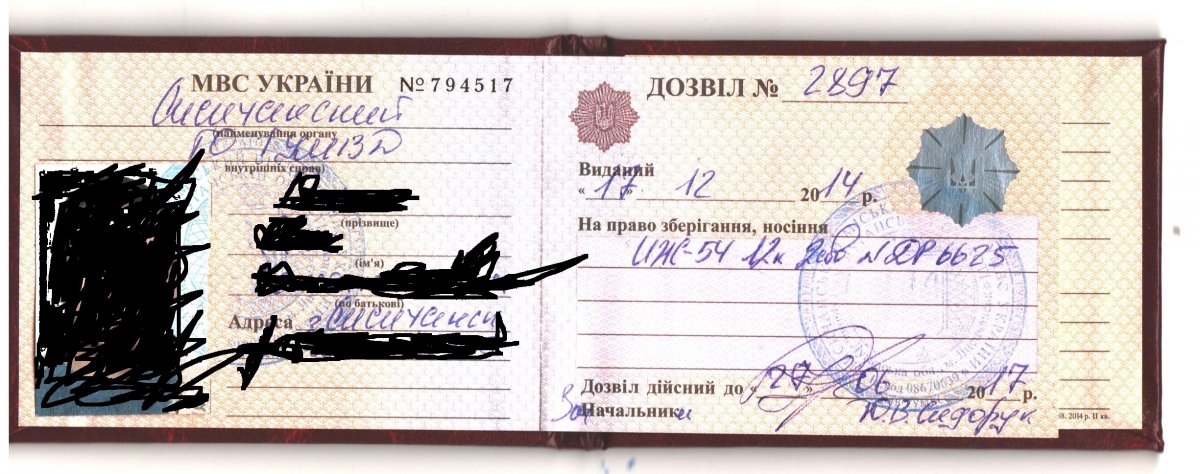 МВС УКРАЇНИ № 794517
Лисичанский
(найменування органу
ГО ГУМВЗД
внутрішніх справ)
(прізвище)
(ім'я)
(по батькові)
Адреса г. Лисичанск
ДОЗВІЛ № 2897
Виданий
« 17 » 12 2014 р.
На право зберігання, носіння
ИЖ-54 12к
6625
Дозвіл дійсний до « 27 » 06 2017 р.
Начальник Ю.В. Сидорук
2014 р. II кв.